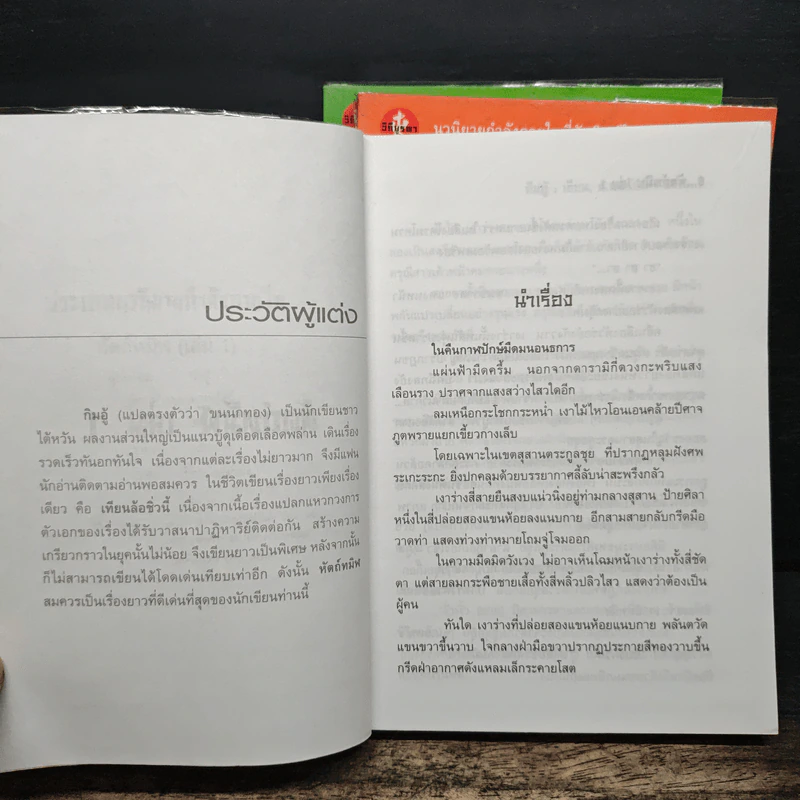 ประวัติผู้แต่ง
กิมอู้ (แปลตรงตัวว่า ขนนกทอง) เป็นนักเขียนชาว
ไต้หวัน ผลงานส่วนใหญ่เป็นแนวบู๊ดุเดือดเลือดพล่าน เดินเรื่อง
รวดเร็วทันอกทันใจ เนื่องจากแต่ละเรื่องไม่ยาวมาก จึงมีแฟน
นักอ่านติดตามอ่านพอสมควร ในชีวิตเขียนเรื่องยาวเพียงเรื่อง
เดียว คือ เทียนล้อชิ่วนี้ เนื่องจากเนื้อเรื่องแปลกแหวกวงการ
ตัวเอกของเรื่องได้รับวาสนาปาฏิหาริย์ติดต่อกัน สร้างความ
เกรียวกราวในยุคนั้นไม่น้อย จึงเขียนยาวเป็นพิเศษ หลังจากนั้น
ก็ไม่สามารถเขียนได้โดดเด่นเทียบเท่าอีก ดังนั้น หัตถ์ทมิฬ
สมควรเป็นเรื่องยาวที่ดีเด่นที่สุดของนักเขียนท่านนี้
นำเรื่อง
ในคืนกาฬปักษ์มืดมนอนธการ
แผ่นฟ้ามืดครึ้ม นอกจากดารามิกี่ดวงกะพริบแสง
เลือนราง ปราศจากแสงสว่างไสวใดอีก
ลมเหนือกระโชกกระหน่ำ เงาไม้ไหวโอนเอนคล้ายปีศาจ
ภูตพรายแยกเขี้ยวกางเล็บ
โดยเฉพาะในเขตสุสานตระกูลชุย ที่ปรากฏหลุมฝังศพ
ระเกะระกะ ยิ่งปกคลุมด้วยบรรยากาศลี้ลับน่าสะพรึงกลัว
เงาร่างสี่สายยืนสงบแน่วนิ่งอยู่ท่ามกลางสุสาน ป้ายศิลา
หนึ่งในสี่ปล่อยสองแขนห้อยลงแนบกาย อีกสามสายกลับกรีดมือ
วาดท่า แสดงท่วงท่าหมายโถมจู่โจมออก
ในความมืดมิดวังเวง ไม่อาจเห็นโฉมหน้าเงาร่างทั้งสี่ชัด
ตา แต่สายลมกระพือชายเสื้อทั้งสี่พลิ้วปลิวไสว แสดงว่าต้องเป็น
ผู้คน
ทันใด เงาร่างที่ปล่อยสองแขนห้อยแนบกาย พลันตวัด
แขนขวาขึ้นวาบ ใจกลางฝ่ามือขวาปรากฏประกายสีทองวาบขึ้น
กรีดฝ่าอากาศดังแหลมเล็กระคายโสต